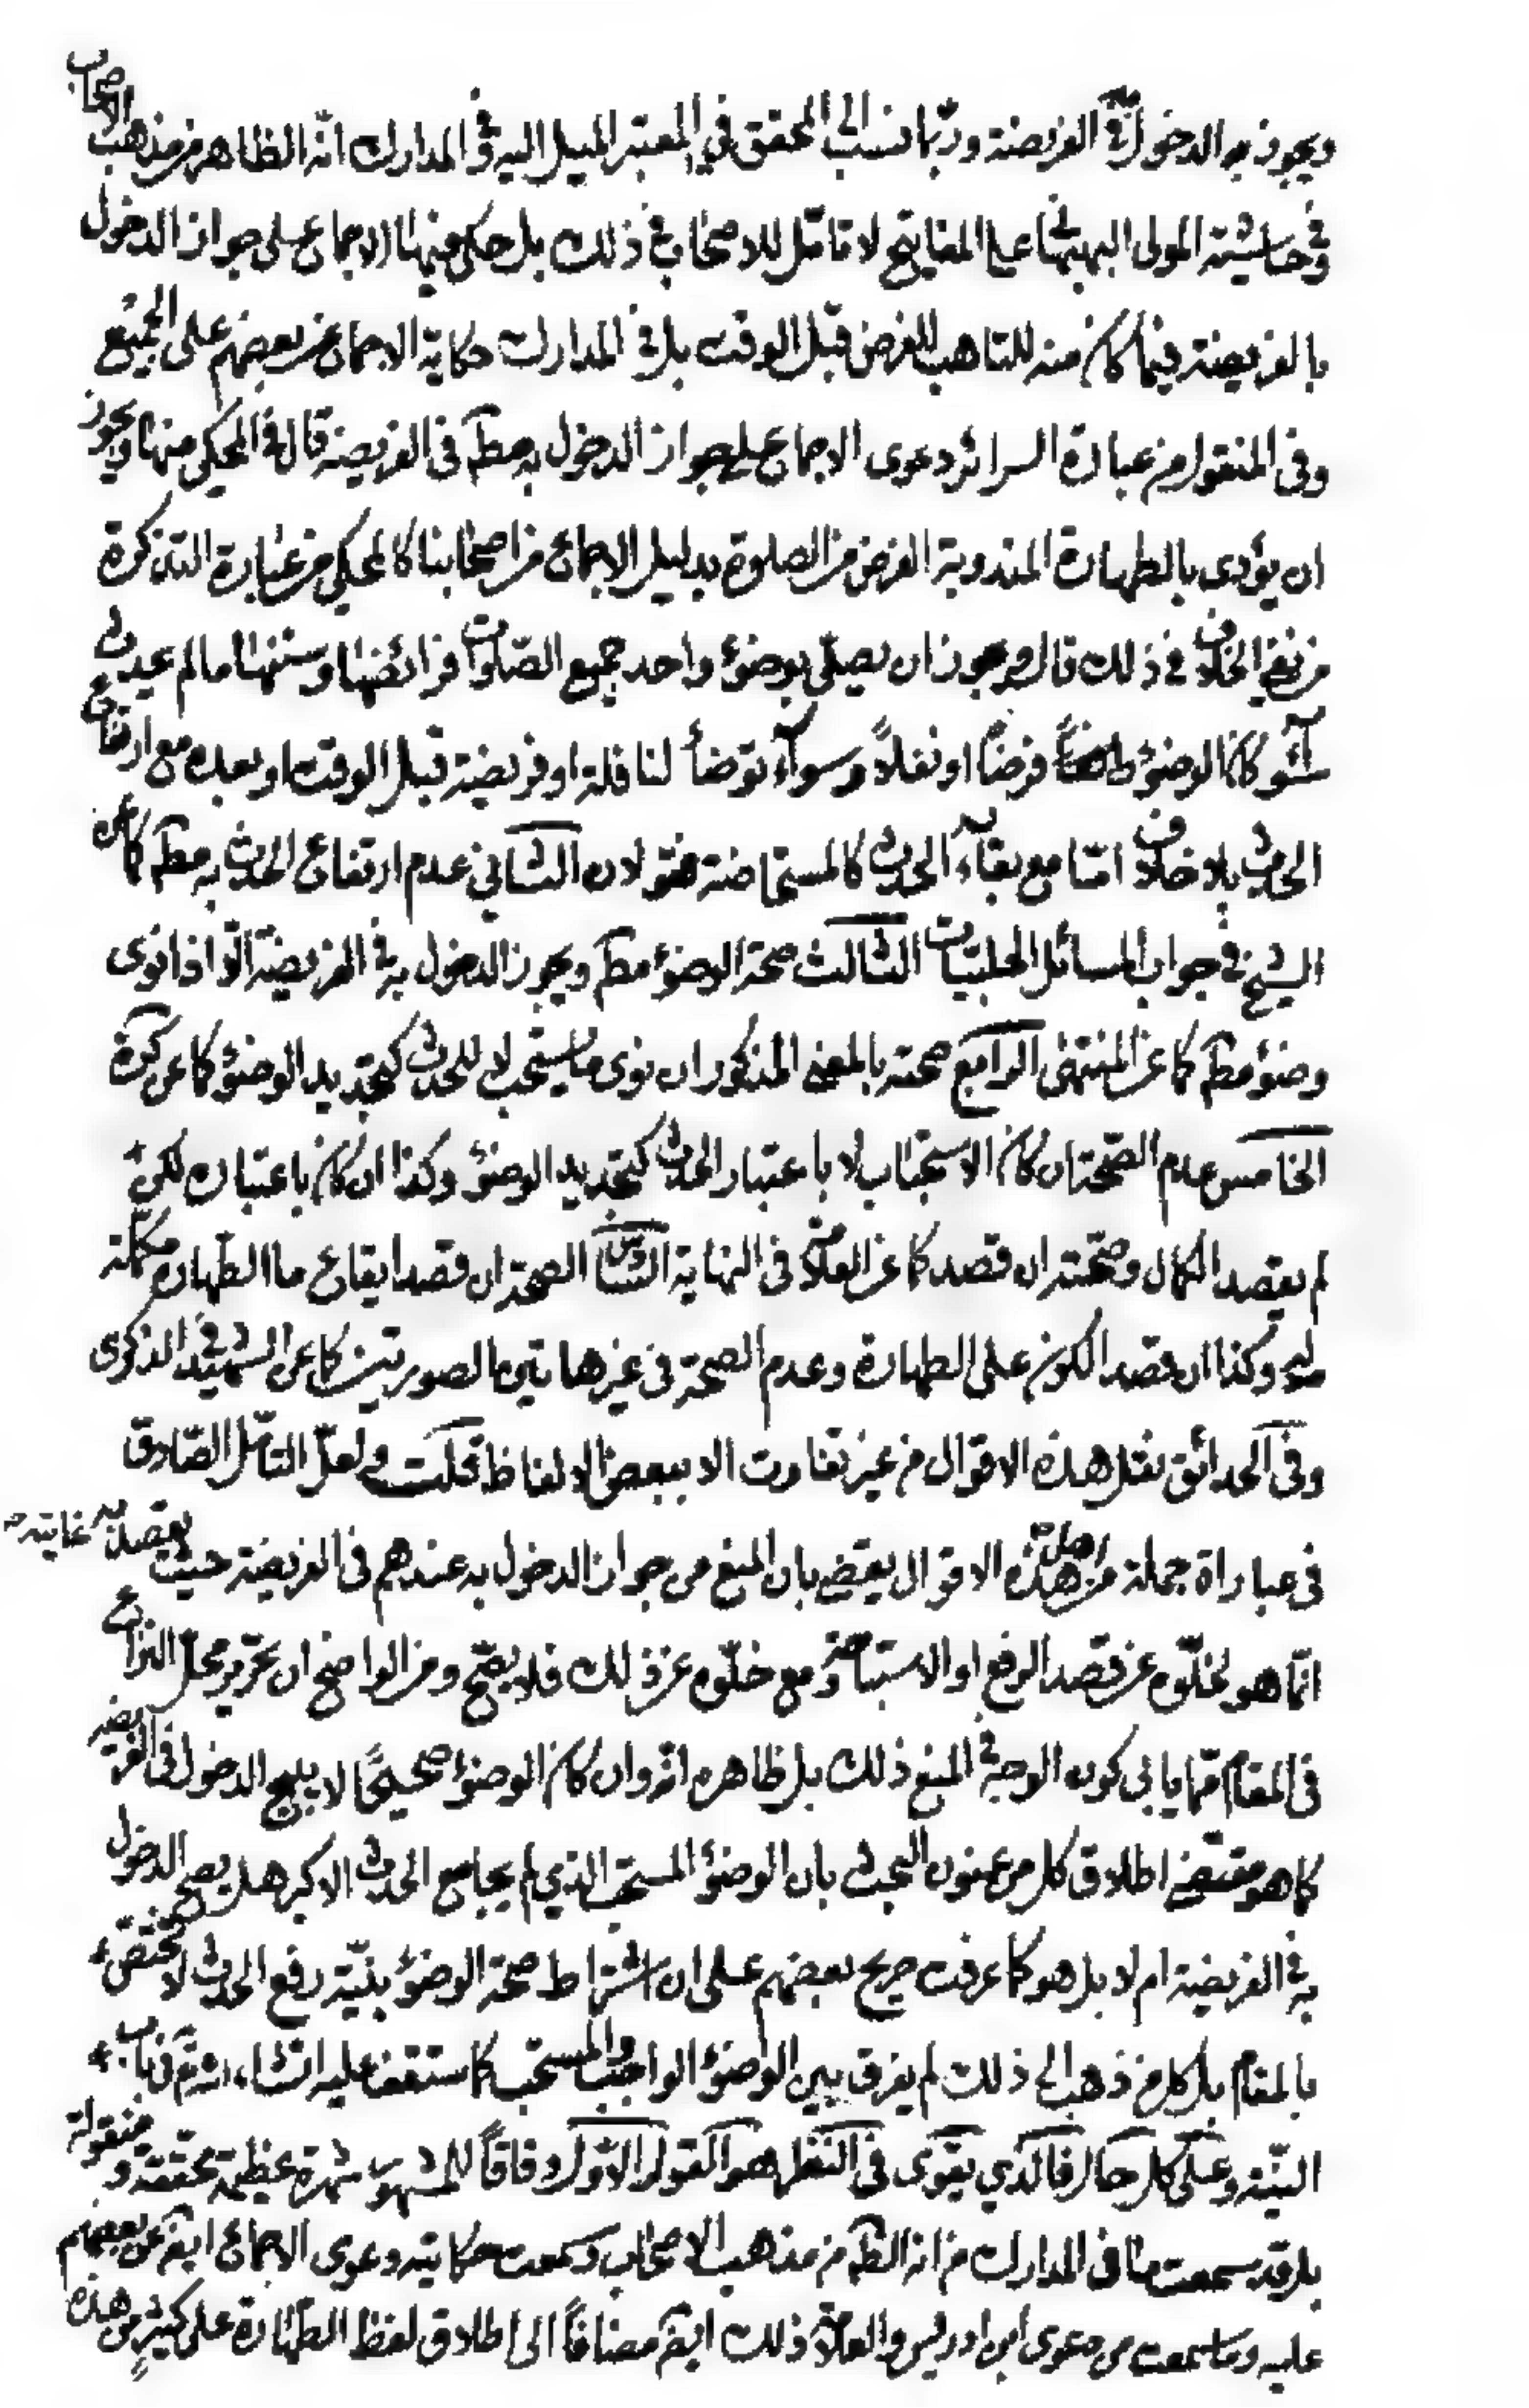 ويجوز به الدخول في الفريضة وربّما نسب الى المحقق في المعتبر الميل اليه وفي المدارك انّه الظاهر من مذهب الاصحاب
وفي حاشية المولى البهبهاني على المفاتيح لا تامّل للاصحاب في ذلك بل حكى فيها الاجماع على جواز الدخول
بالفريضة فيما كان منه للتاهب للفرض قبل الوقت بل في المدارك حكاية الاجماع عن بعضهم على الجميع
وفي المنقول من عبارة السرائر دعوى الاجماع على جواز الدخول به مطم في الفريضة قال في المحكي منها ويجوز
ان يؤدى بالطهارة المندوبة الفرض من الصلوة بدليل الاجماع من اصحابنا كالمحكي من عبارة التذكرة
من نفي الخلاف في ذلك قال ويجوز ان يصلّى بوضوء واحد جميع الصّلوات فرائضها وسننها ما لم يحدث
سوآء كان الوضوء فرضاً او نفلاً وسوآء توضأ لنافلة او فريضة قبل الوقت او بعده مع ارتفاع
الحدث بلا خلاف امّا مع بقآء الحدث كالمستحاضة فقولان الثاني عدم ارتفاع الحدث به مطم كما عن
الشيخ في جواب المسائل الحلبيّات الثالث صحة الوضوء مطم ويجوز الدخول به في الفريضة الّا اذا نوى
وضوء مطم كما عن المنتهى الرابع صحته بالمعنى المذكور ان نوى ما يستحب لا للحدث كتجديد الوضوء كما عن كرة
الخامس عدم الصّحة ان كان الاستحباب لا باعتبار الحدث كتجديد الوضوء وكذا ان كان باعتباره لكن
لم يقصد الكمال وصحّته ان قصد كما عن العلامة في النهاية السادس الصحة ان قصد ايقاع ما الطهارة مكمّلة
له وكذا ان قصد الكون على الطهارة وعدم الصحة في غير هاتين الصورتين كما عن الشهيد في الذكرى
وفي الحدائق نقل هذه الاقوال من غير تفاوت الا ببعض الالفاظ قلت ولعلّ التامّل الصّادق
في عباراة جملة من اهل هذه الاقوال يقضي بان المنع من جواز الدخول به عندهم في الفريضة حيث يقصد به غايته
انّما هو لخلّوه عن قصد الرفع او الاستباحة ومع خلّوه عن ذلك فلا يصّح ومن الواضح ان تحرير محل النزاع
في المقام ممّا يابى كون الوجه في المنع ذلك بل ظاهره انّه وان كان الوضوء صحيحًا لا يبيح الدخول في الفريضة
كما هو مقتضى اطلاق كل من عنون البحث بان الوضوء المستحب الذي لم يجامع الحدث الاكبر هل يصح الدخول
به في الفريضة ام لا بل هو كما عرفت صريح بعضهم على ان اشتراط صحة الوضوء بنيّة رفع الحدث لا تختص
بالمقام بل كل من ذهب الى ذلك لم يفرق بين الوضوء الواجب والمستحب كما ستقف عليه انشاء الله تم في باب
النيّة وعلى كل حال فالذي يقوى في النظر هو القول الاوّل وفاقاً للمشهور شهرة عظيمة محققة ومنقولة
بل قد سمعت ما في المدارك من انه الظم من مذهب الاصحاب وسمعت حكايته دعوى الاجماع ايضم عن بعضهم
عليه وما سمعت من دعوى ابن ادريس والعلامة ذلك ايضم مضافاً الى اطلاق لفظ الطهارة على كثير من هذه